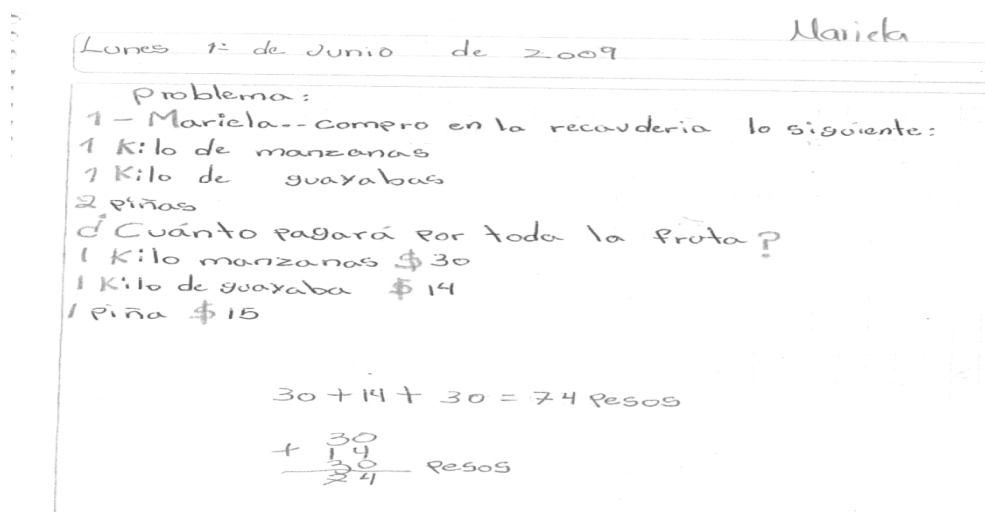 Mariela
Lunes 1º de Junio de 2009
Problema:
1- Mariela.. compro en la recauderia lo siguiente:
1 Kilo de manzanas
1 Kilo de guayabas
2 piñas
¿Cuánto pagará por toda la fruta?
1 Kilo manzanas $30
1 Kilo de guayaba $14
1 piña $15
30 + 14 + 30 = 74 pesos
30
+ 14
30
74 pesos